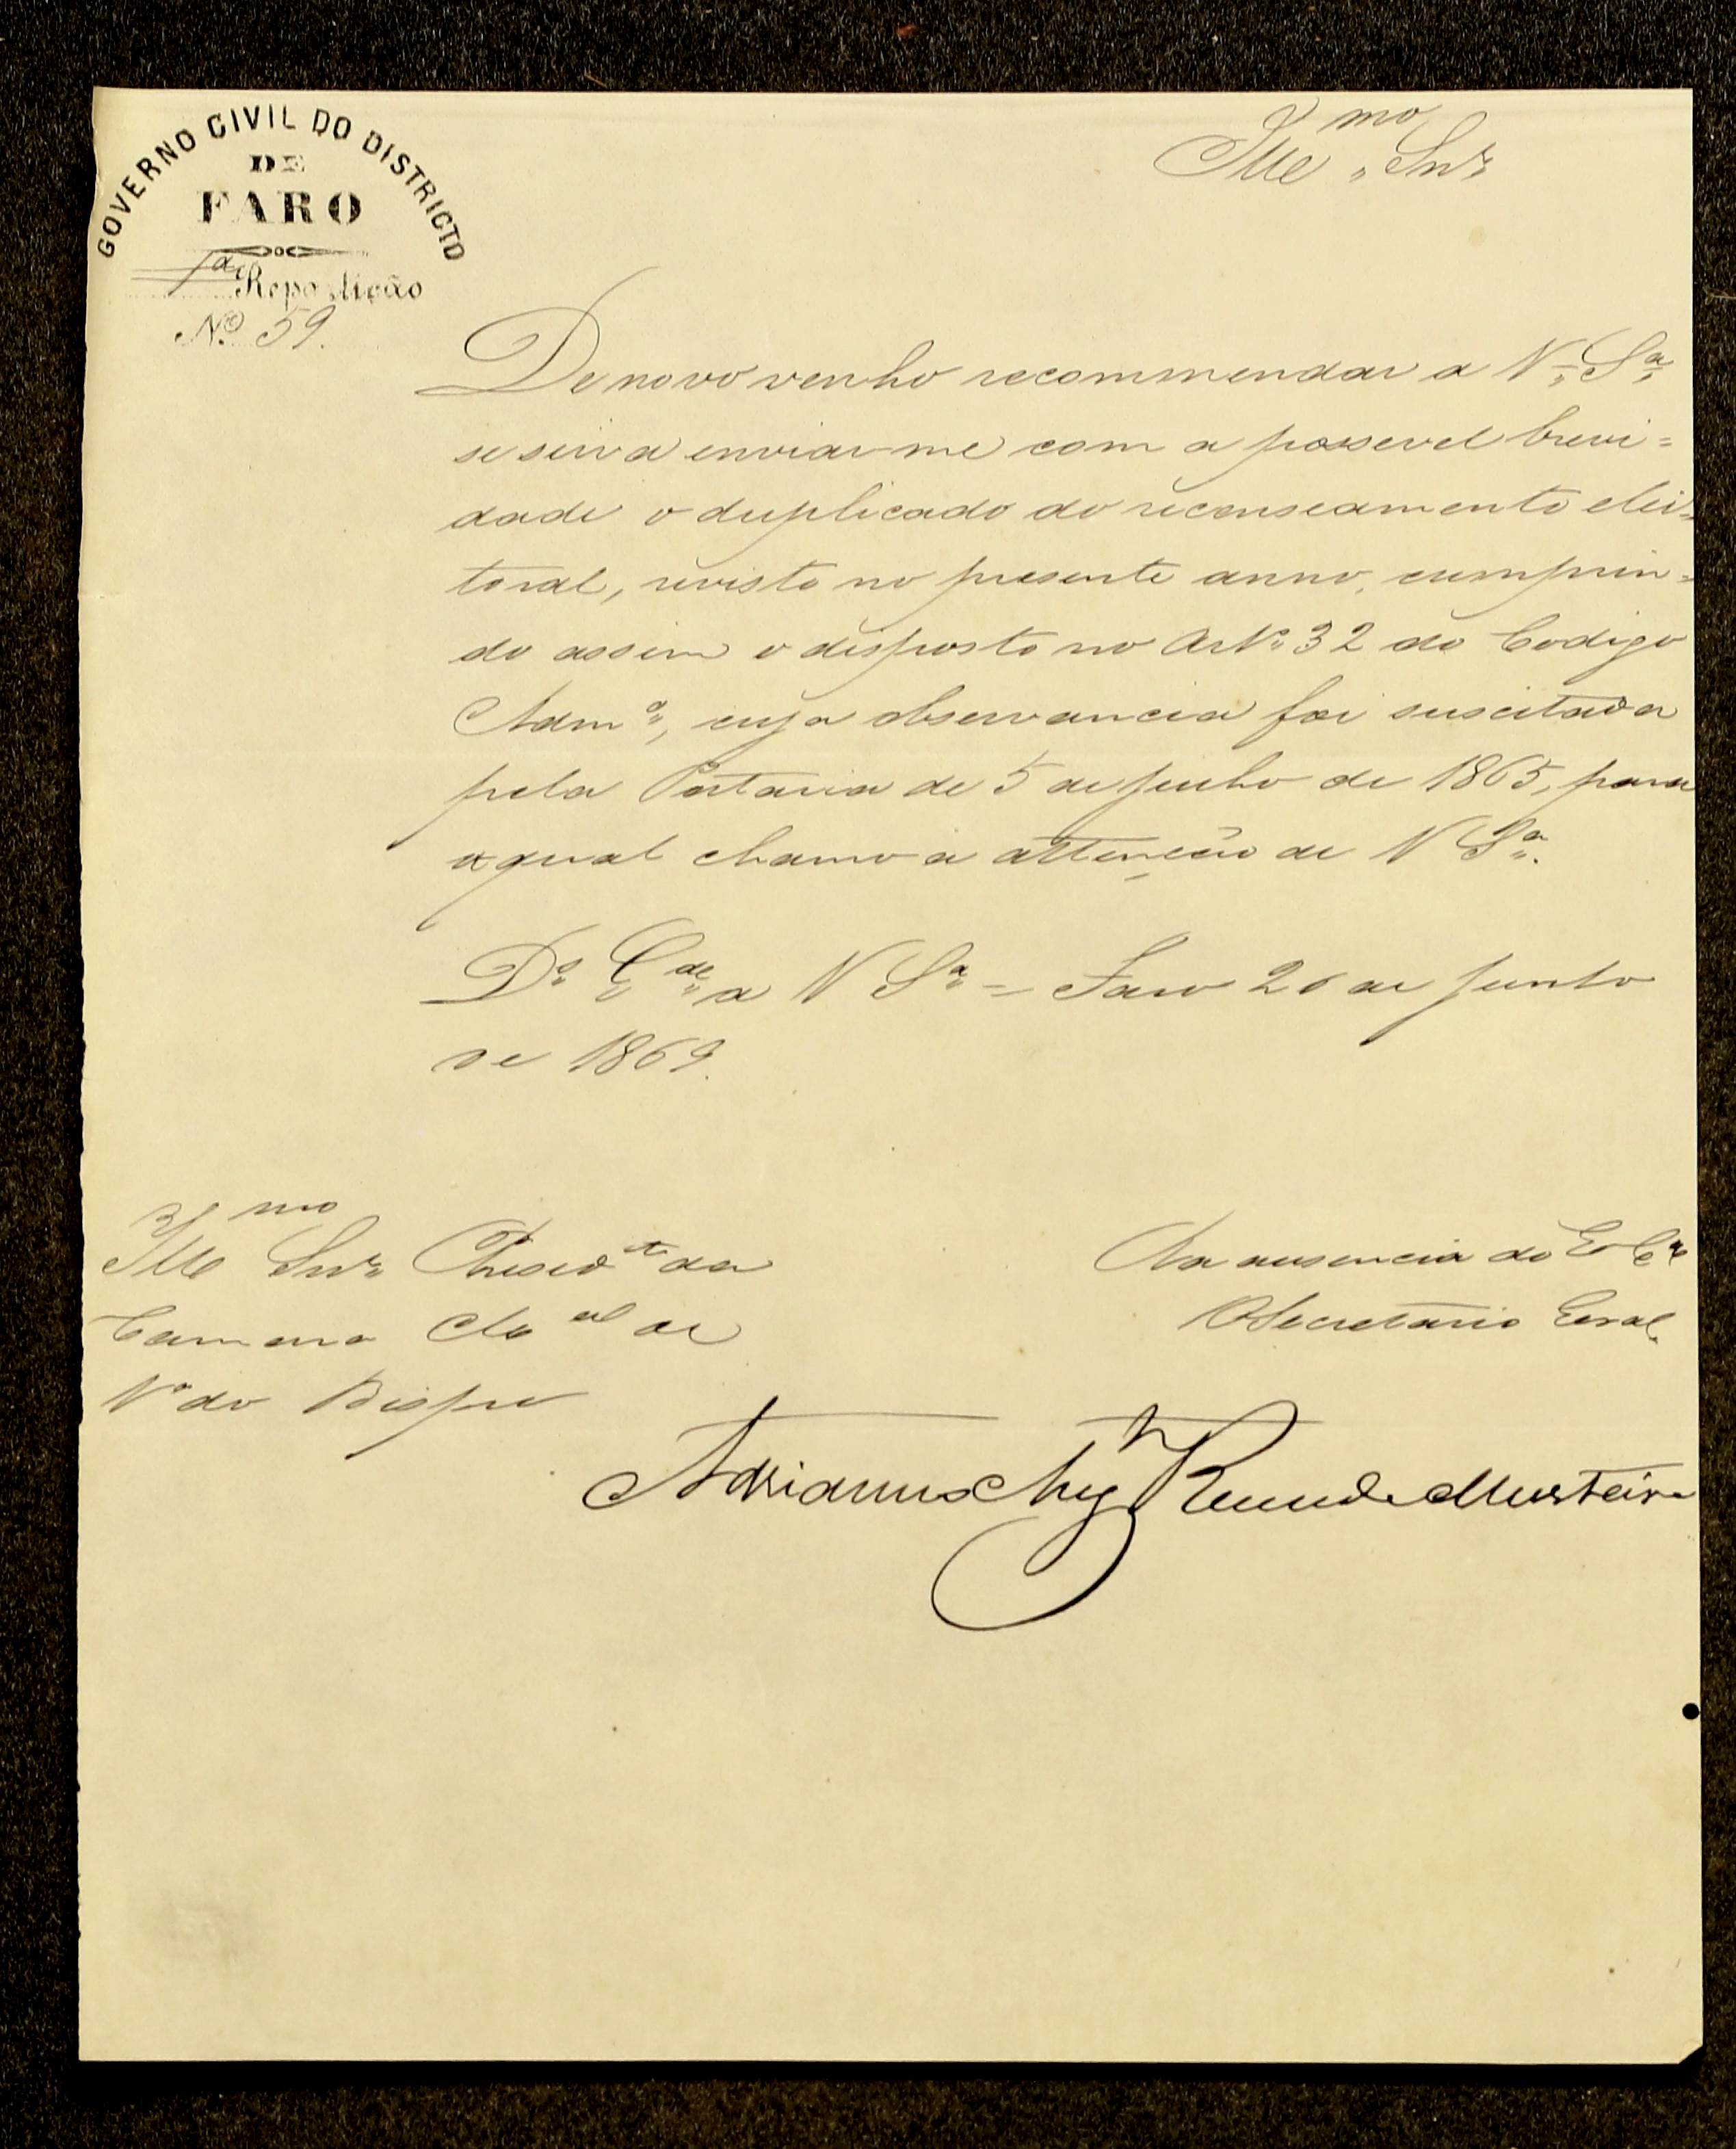 GOVERNO CIVIL DO DISTRICTO
DE
FARO
1ª Repartição
Nº 59.
Illmo Snr
De novo venho recommendar a V. Sª
se sirva enviar-me com a possevel brevi=
dade o duplicado do recenseamento elei=
toral, revisto no presente anno, cumprin=
do assim o disposto no Artº 32 do Codigo
Admº, cuja observancia foi suscitada
pela Portaria de 5 de Junho de 1865, para
a qual chamo a attenção de V Sª.
Ds Gde a V Sª = Faro 26 de Junho
de 1869.
Illmo Snr Presidte da
Camara Mal de
Vª do Bispo
Na ausencia do
O Secretario Geral
Adriano